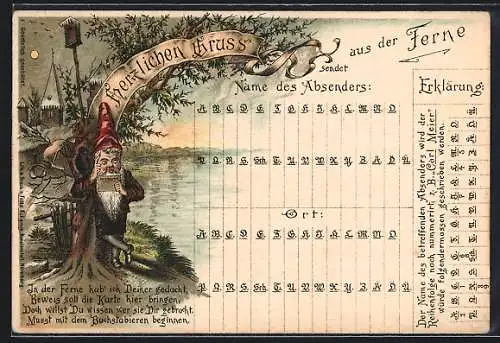 Herzlichen Gruss
sendet
aus der Ferne
Name des Absenders:
A B C D E F G H I J K L M N O
P Q R S Sch T U V W X Y Z Ä Ö Ü
Ort:
A B C D E F G H I J K L M N O
P Q R S Sch T U V W X Y Z Ä Ö Ü
In der Ferne hab' ich Deiner gedacht,
Beweis soll die Karte hier bringen,
Doch willst Du wissen wer sie Dir gebracht,
Musst mit dem Buchstabieren beginnen.
Erklärung.
Der Name des betreffenden Absenders wird der
Reihenfolge nach nummerirt z. B. „Carl Meier"
würde folgendermassen geschrieben werden.
Gesetzlich geschützt